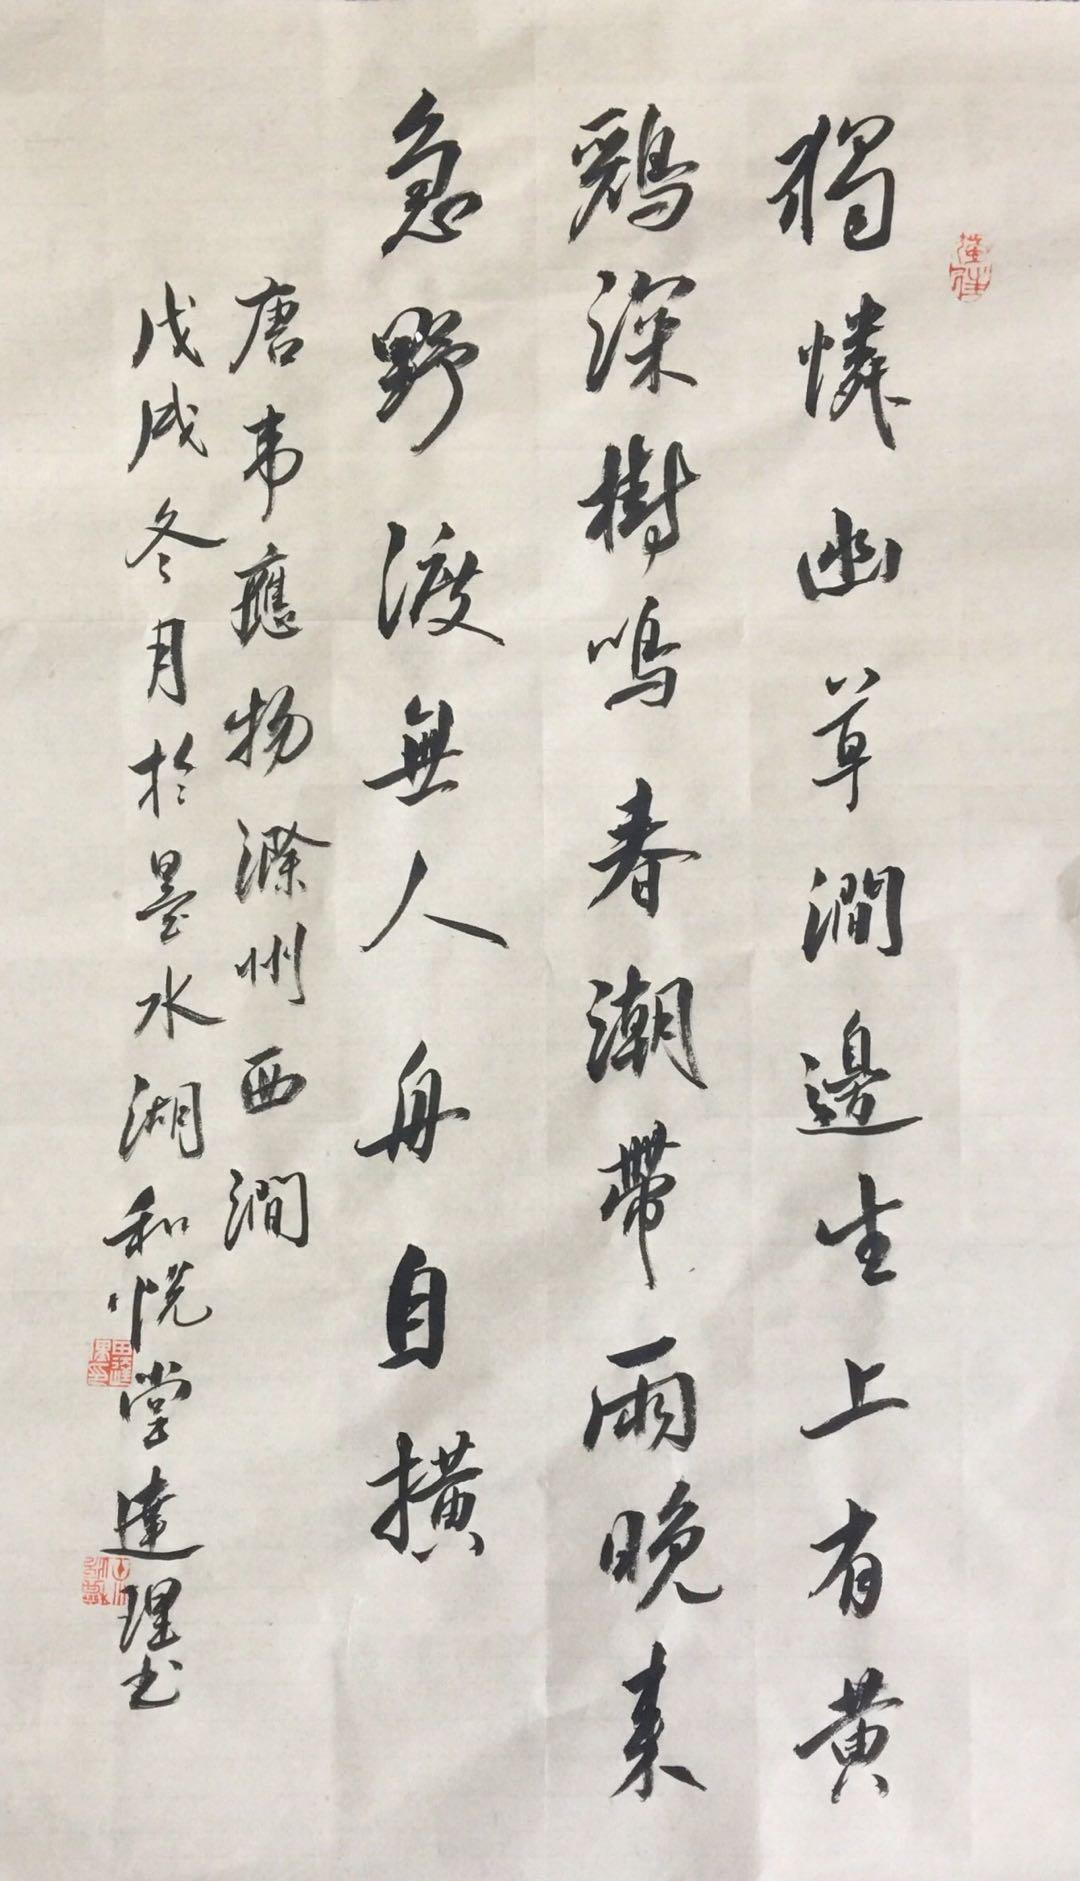 獨憐幽草澗邊生上有黄
鸝深樹鳴春潮帶雨晚来
急野渡無人舟自横
唐韦應物滁州西澗
戊戌冬月於墨水湖和悦堂達理书